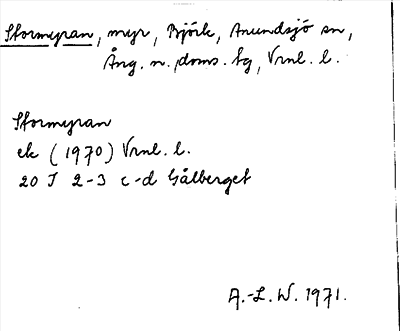 Stormyran, myr, Björk, Anundsjö sn,
Ång. n. doms. fg, Vrnl. l.
Stormyran
ek (1970) Vrnl. l.
20 J 2-3 c-d Gålberget
A.-L. W. 1971.